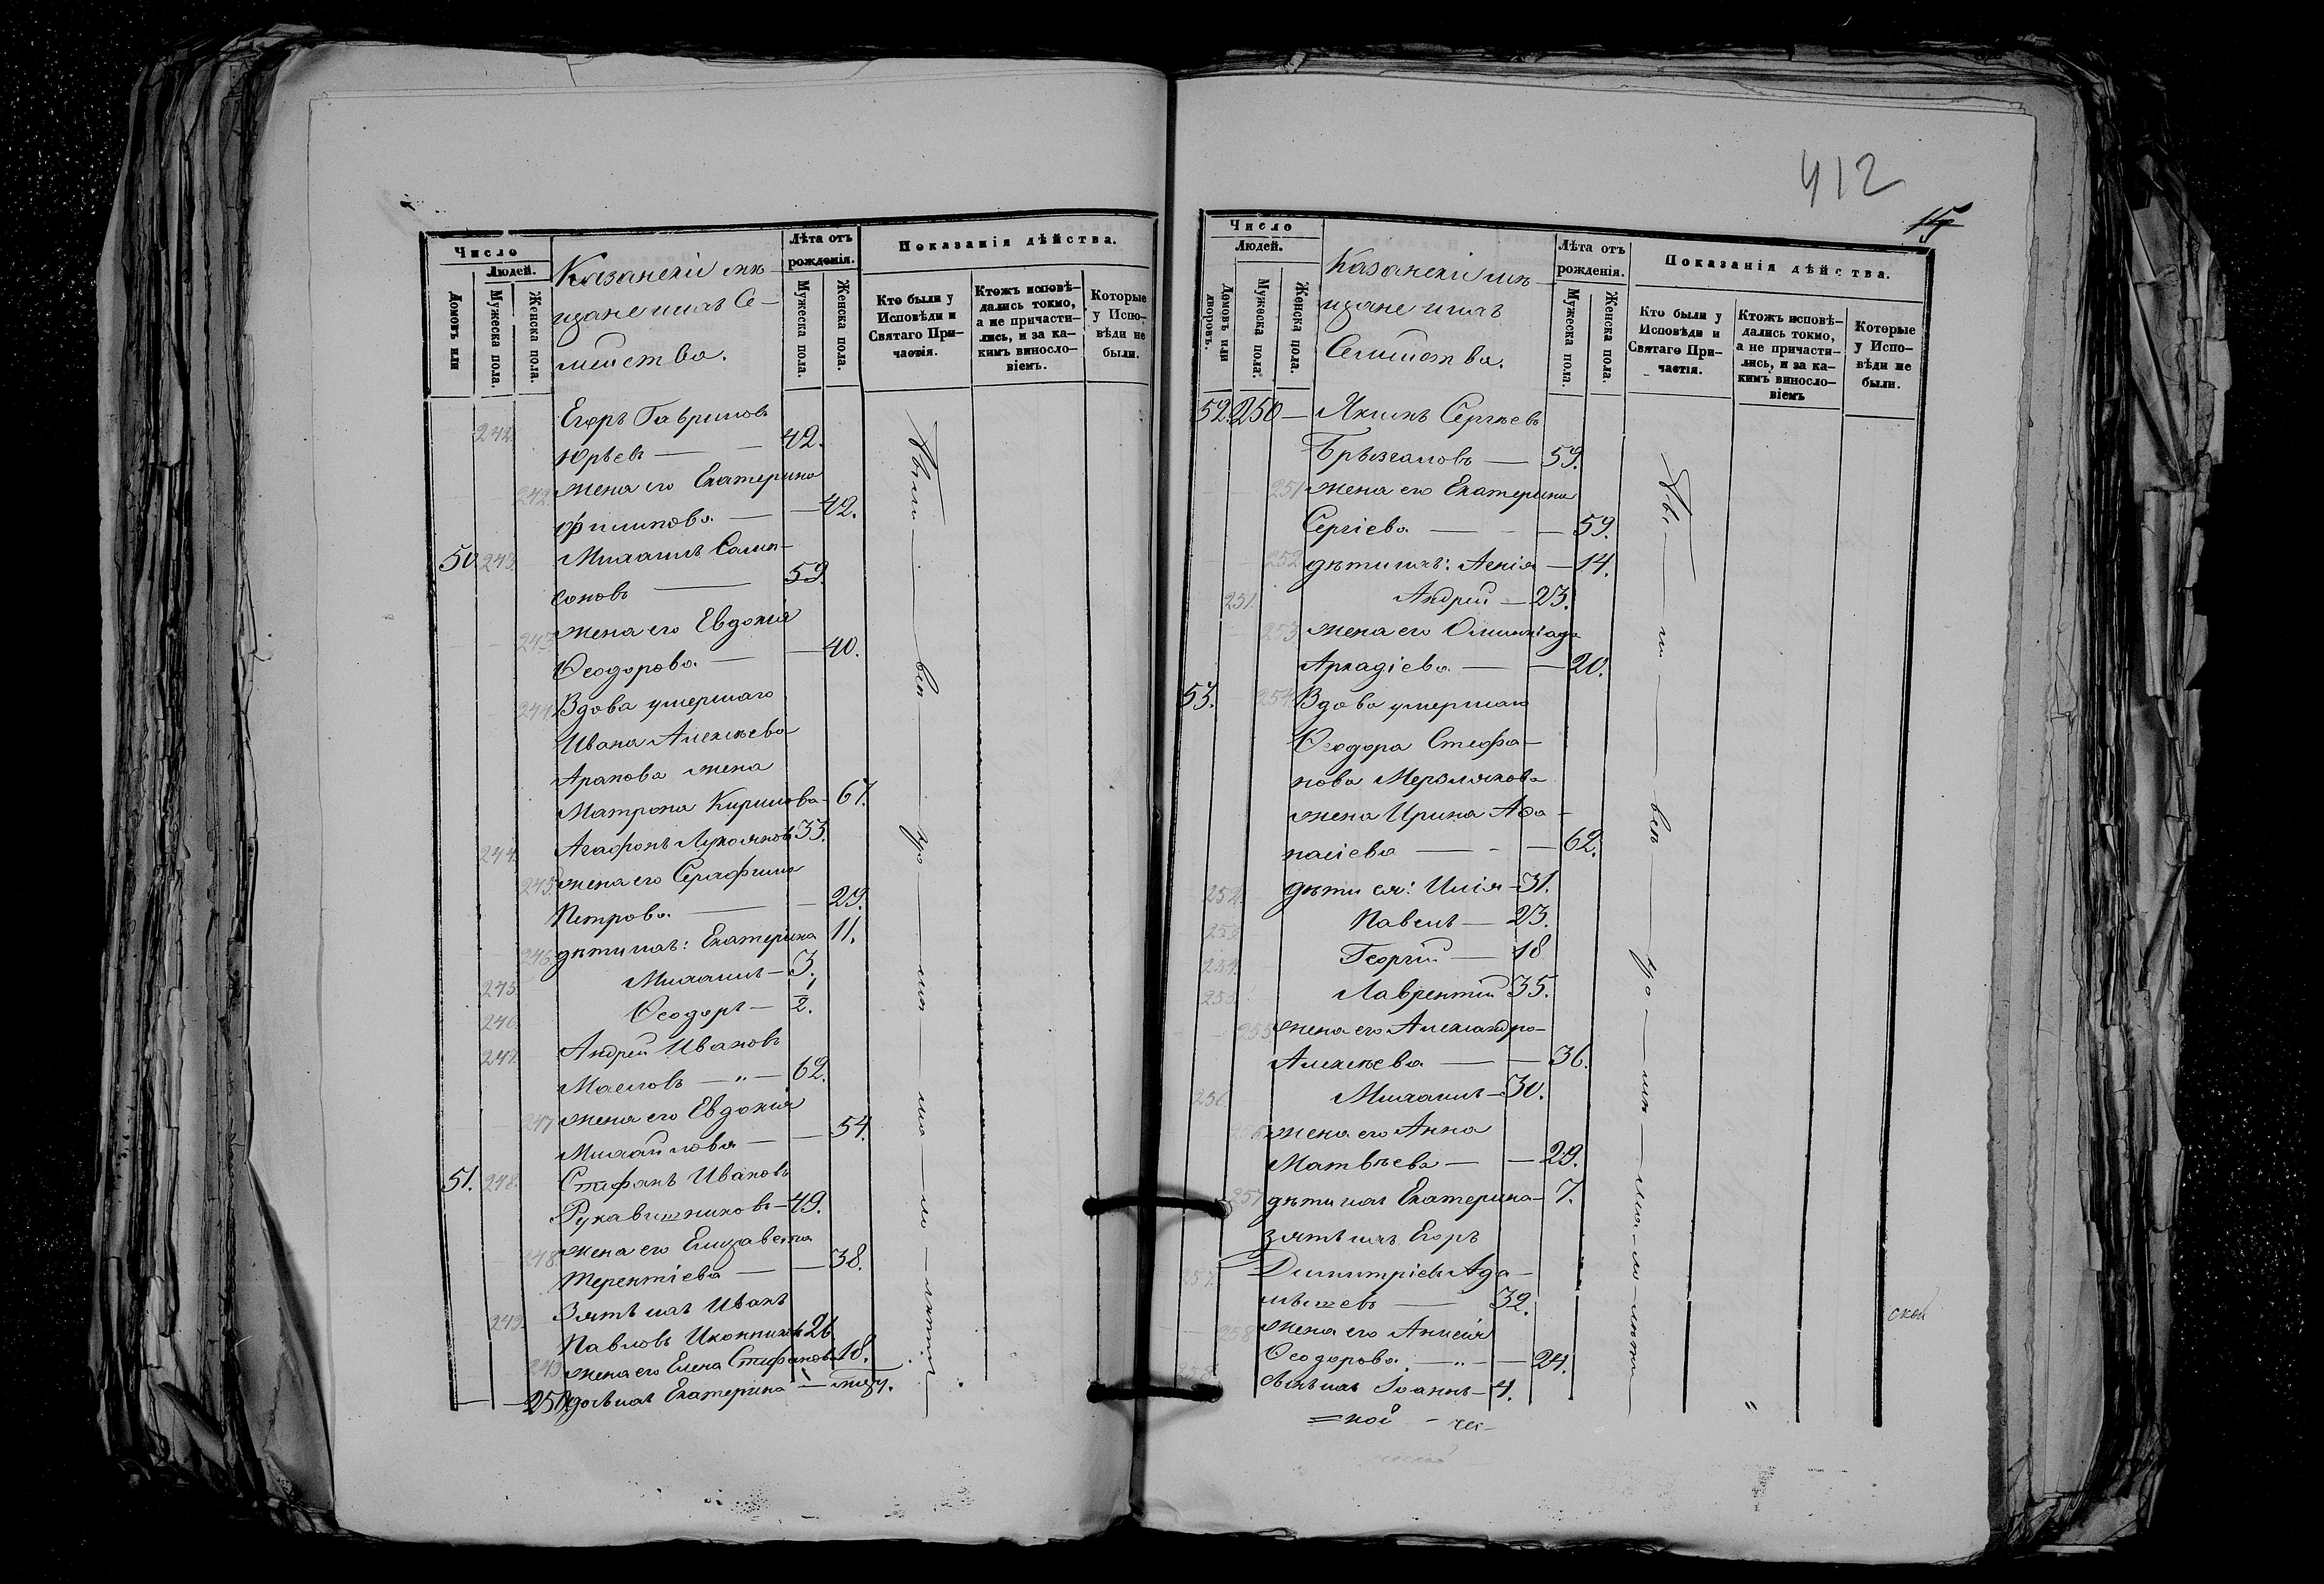 Число
Людей.
Домовъ или
Мужеска пола.
Женска пола.
Казанскіи мѣ-
щане и ихъ Се-
мейства.
Лѣта отъ
рожденія.
Мужеска пола.
Женска пола.
Показанія дѣйства.
Кто были у
Исповѣди и
Святаго При-
частія.
Ктожъ исповѣ-
дались токмо,
а не причасти-
лись, и за ка-
кимъ виносло-
віемъ.
Которые
у Испо-
вѣди не
были.
242. Егоръ Гавриловъ
Юрьевъ — 42.
242 жена его Екатерина
Филипова — 42.
50. 243. Михаилъ Самп-
соновъ — 59.
243 жена его Евдокія
Ѳеодорова — 40.
244 Вдова умершаго
Ивана Алексѣева
Арапова жена
Матрона Кирилова — 67.
244. Агафонъ Лукояновъ 33.
245 жена его Серафима
Петрова — 29.
246 дѣти ихъ: Екатерина 11.
245. Михаилъ — 3.
246. Ѳеодоръ — 1/2.
247. Андрей Ивановъ
Масловъ — „ — 62.
247 жена его Евдокія
Михайлова — 54.
51. 248. Стефанъ Ивановъ
Рукавишниковъ — 49.
248. жена его Елизавета
Терентіева — 38.
249. Зять ихъ Иванъ
Павловъ Иконниковъ 26
249 жена его Елена Стефанова 18.
250 дочь ихъ Екатерина —
были
въ
412
15
Число
Людей.
Домовъ или
дворовъ.
Мужеска пола.
Женска пола.
Казанскіи мѣ-
щане и ихъ
Семейства.
Лѣта отъ
рожденія.
Мужеска пола.
Женска пола.
Показанія дѣйства.
Кто были у
Исповѣди и
Святаго При-
частія.
Ктожъ исповѣ-
дались токмо,
а не причасти-
лись, и за ка-
кимъ виносло-
віемъ
Которые
у Испо-
вѣди не
были.
52. 250 — Якимъ Сергѣевъ
Брызгаловъ — 59.
251 жена его Екатерина
Сергіева — 59.
252 дѣти ихъ: Агнія — 14.
251. Андрей — 23.
253 жена его Олимпіада
Аркадіева — 20.
53. 254 Вдова умершаго
Ѳеодора Стефа-
нова Мерзлякова
жена Ирина Аѳа-
насіева — 62.
252. дѣти ея: Илія — 31.
253. Павелъ — 23.
254. Георгій — 18
255. Лаврентій 35.
255 жена его Александра
Алексѣева — 36.
256. Михаилъ — 30.
256 жена его Анна
Матвѣева — 29.
257 дѣти ихъ Екатерина — 7.
зять ихъ Егоръ
257. Димитріевъ Ада-
мышевъ — 32.
258 жена его Анисія
Ѳеодорова — „ — 24.
258 сынъ ихъ Іоаннъ — 4.
=кой — чес-
ской